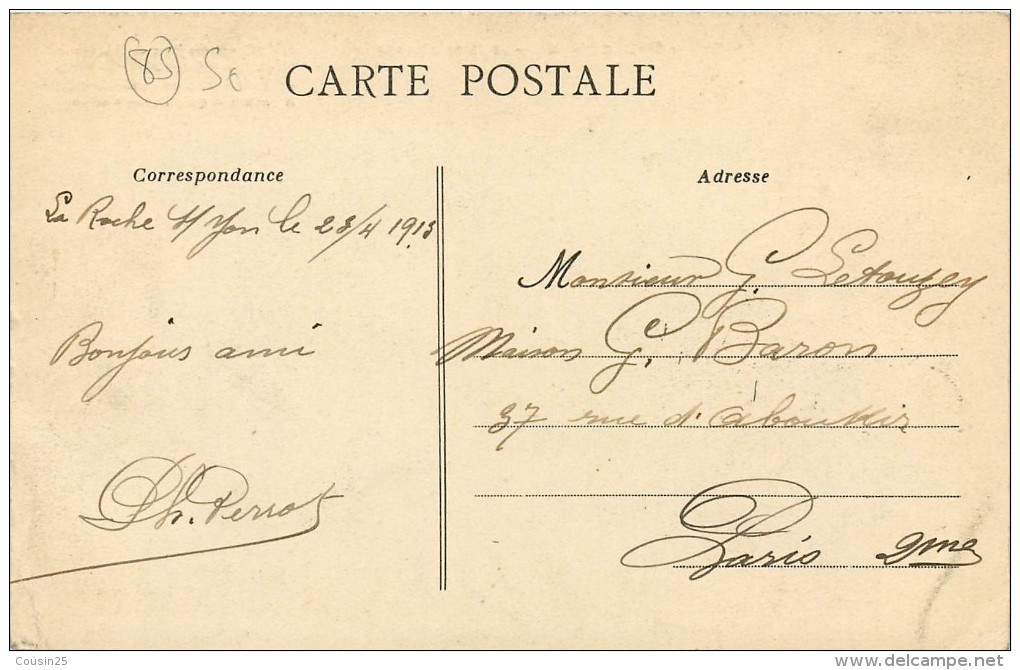 85 50
CARTE POSTALE
Correspondance
La Roche s/ Yon le 23/4 1913
Bonjour ami
Ph. Perrot
Adresse
Monsieur G. Letouzey
Maison G. Baron
37 rue d'Aboukir
Paris 2me
Cousin25
www.delcampe.net